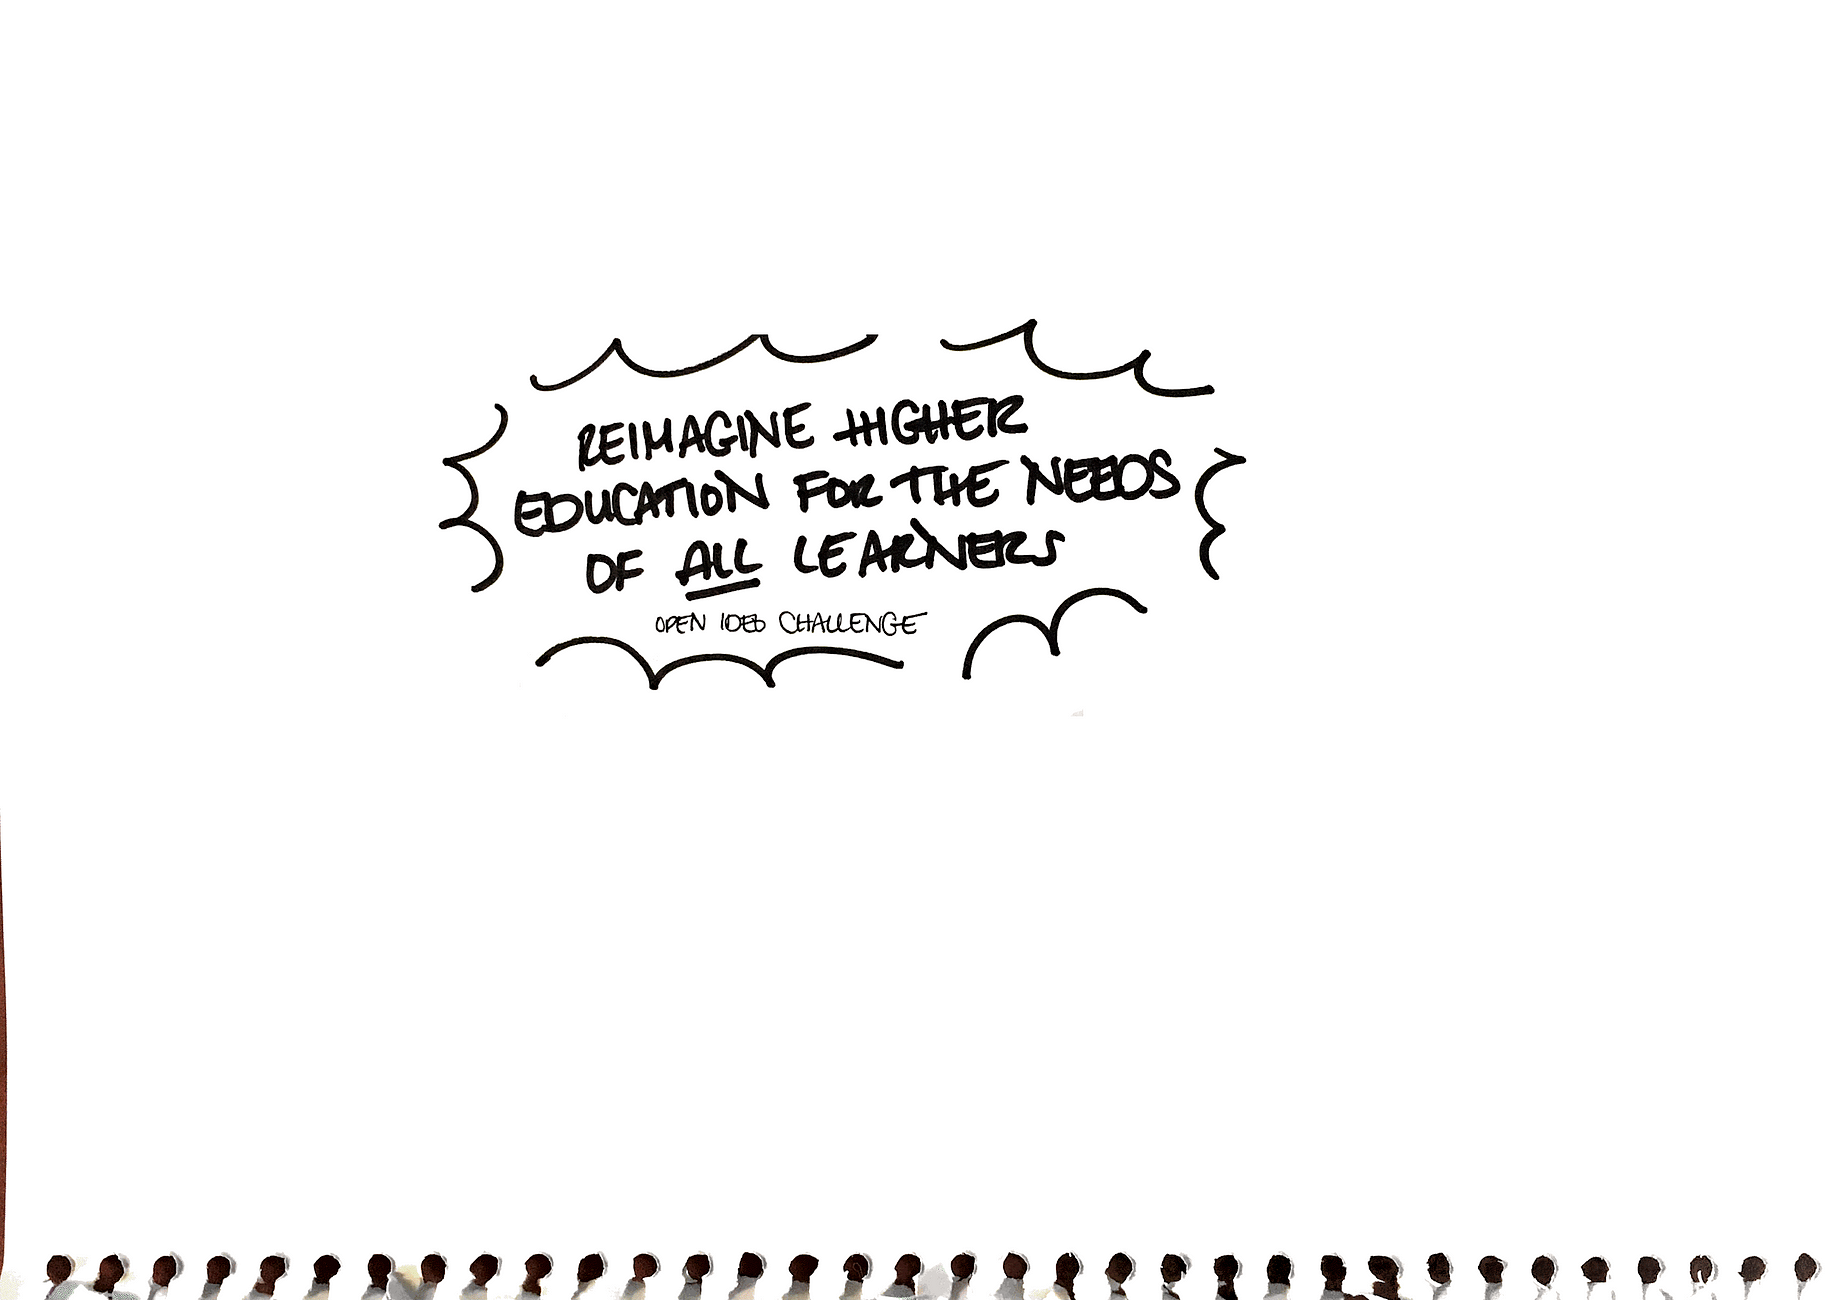 REIMAGINE HIGHER
EDUCATION FOR THE NEEDS
OF ALL LEARNERS
OPEN IDEO CHALLENGE